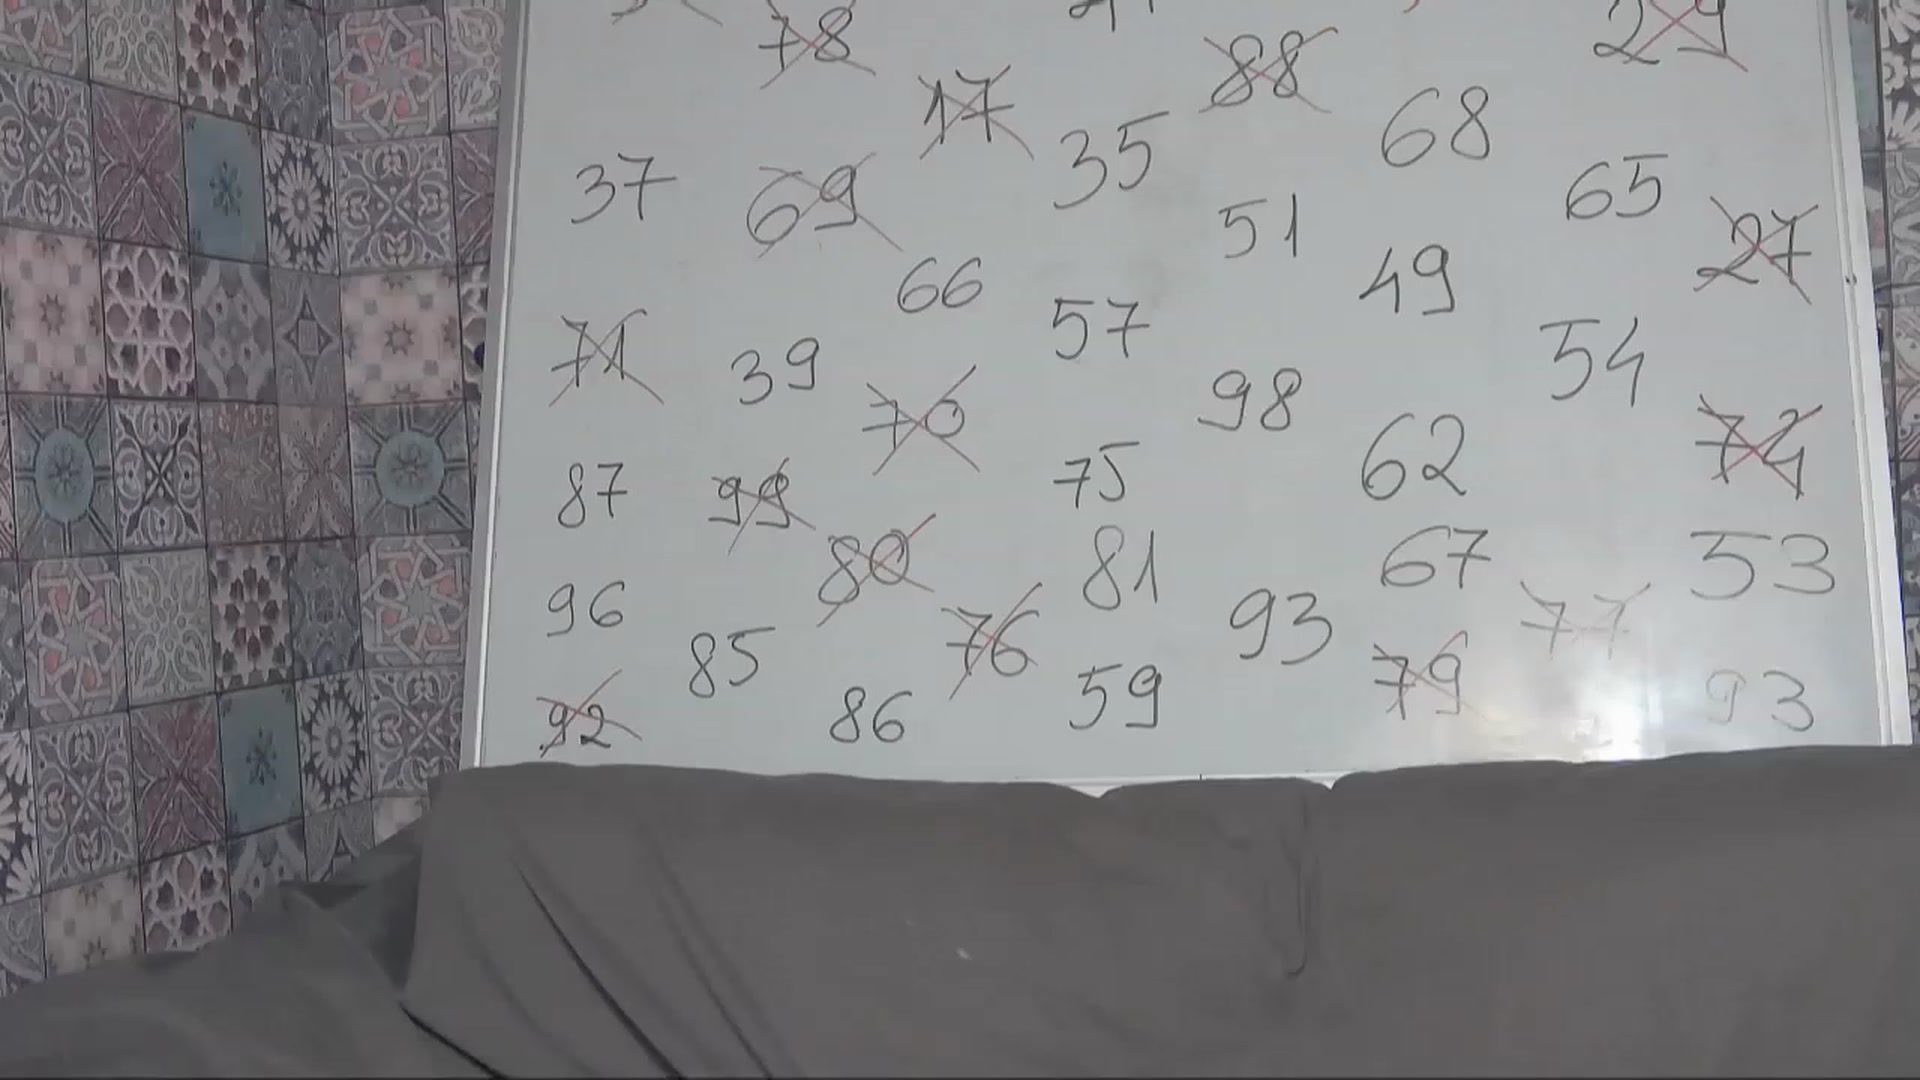 78 29
17 88
37 69 35 68 65
66 51 49 27
71 39 57 54
70 98 62 74
87 99 75
80 81 67 53
96 85 76 93 77
92 86 59 79 93